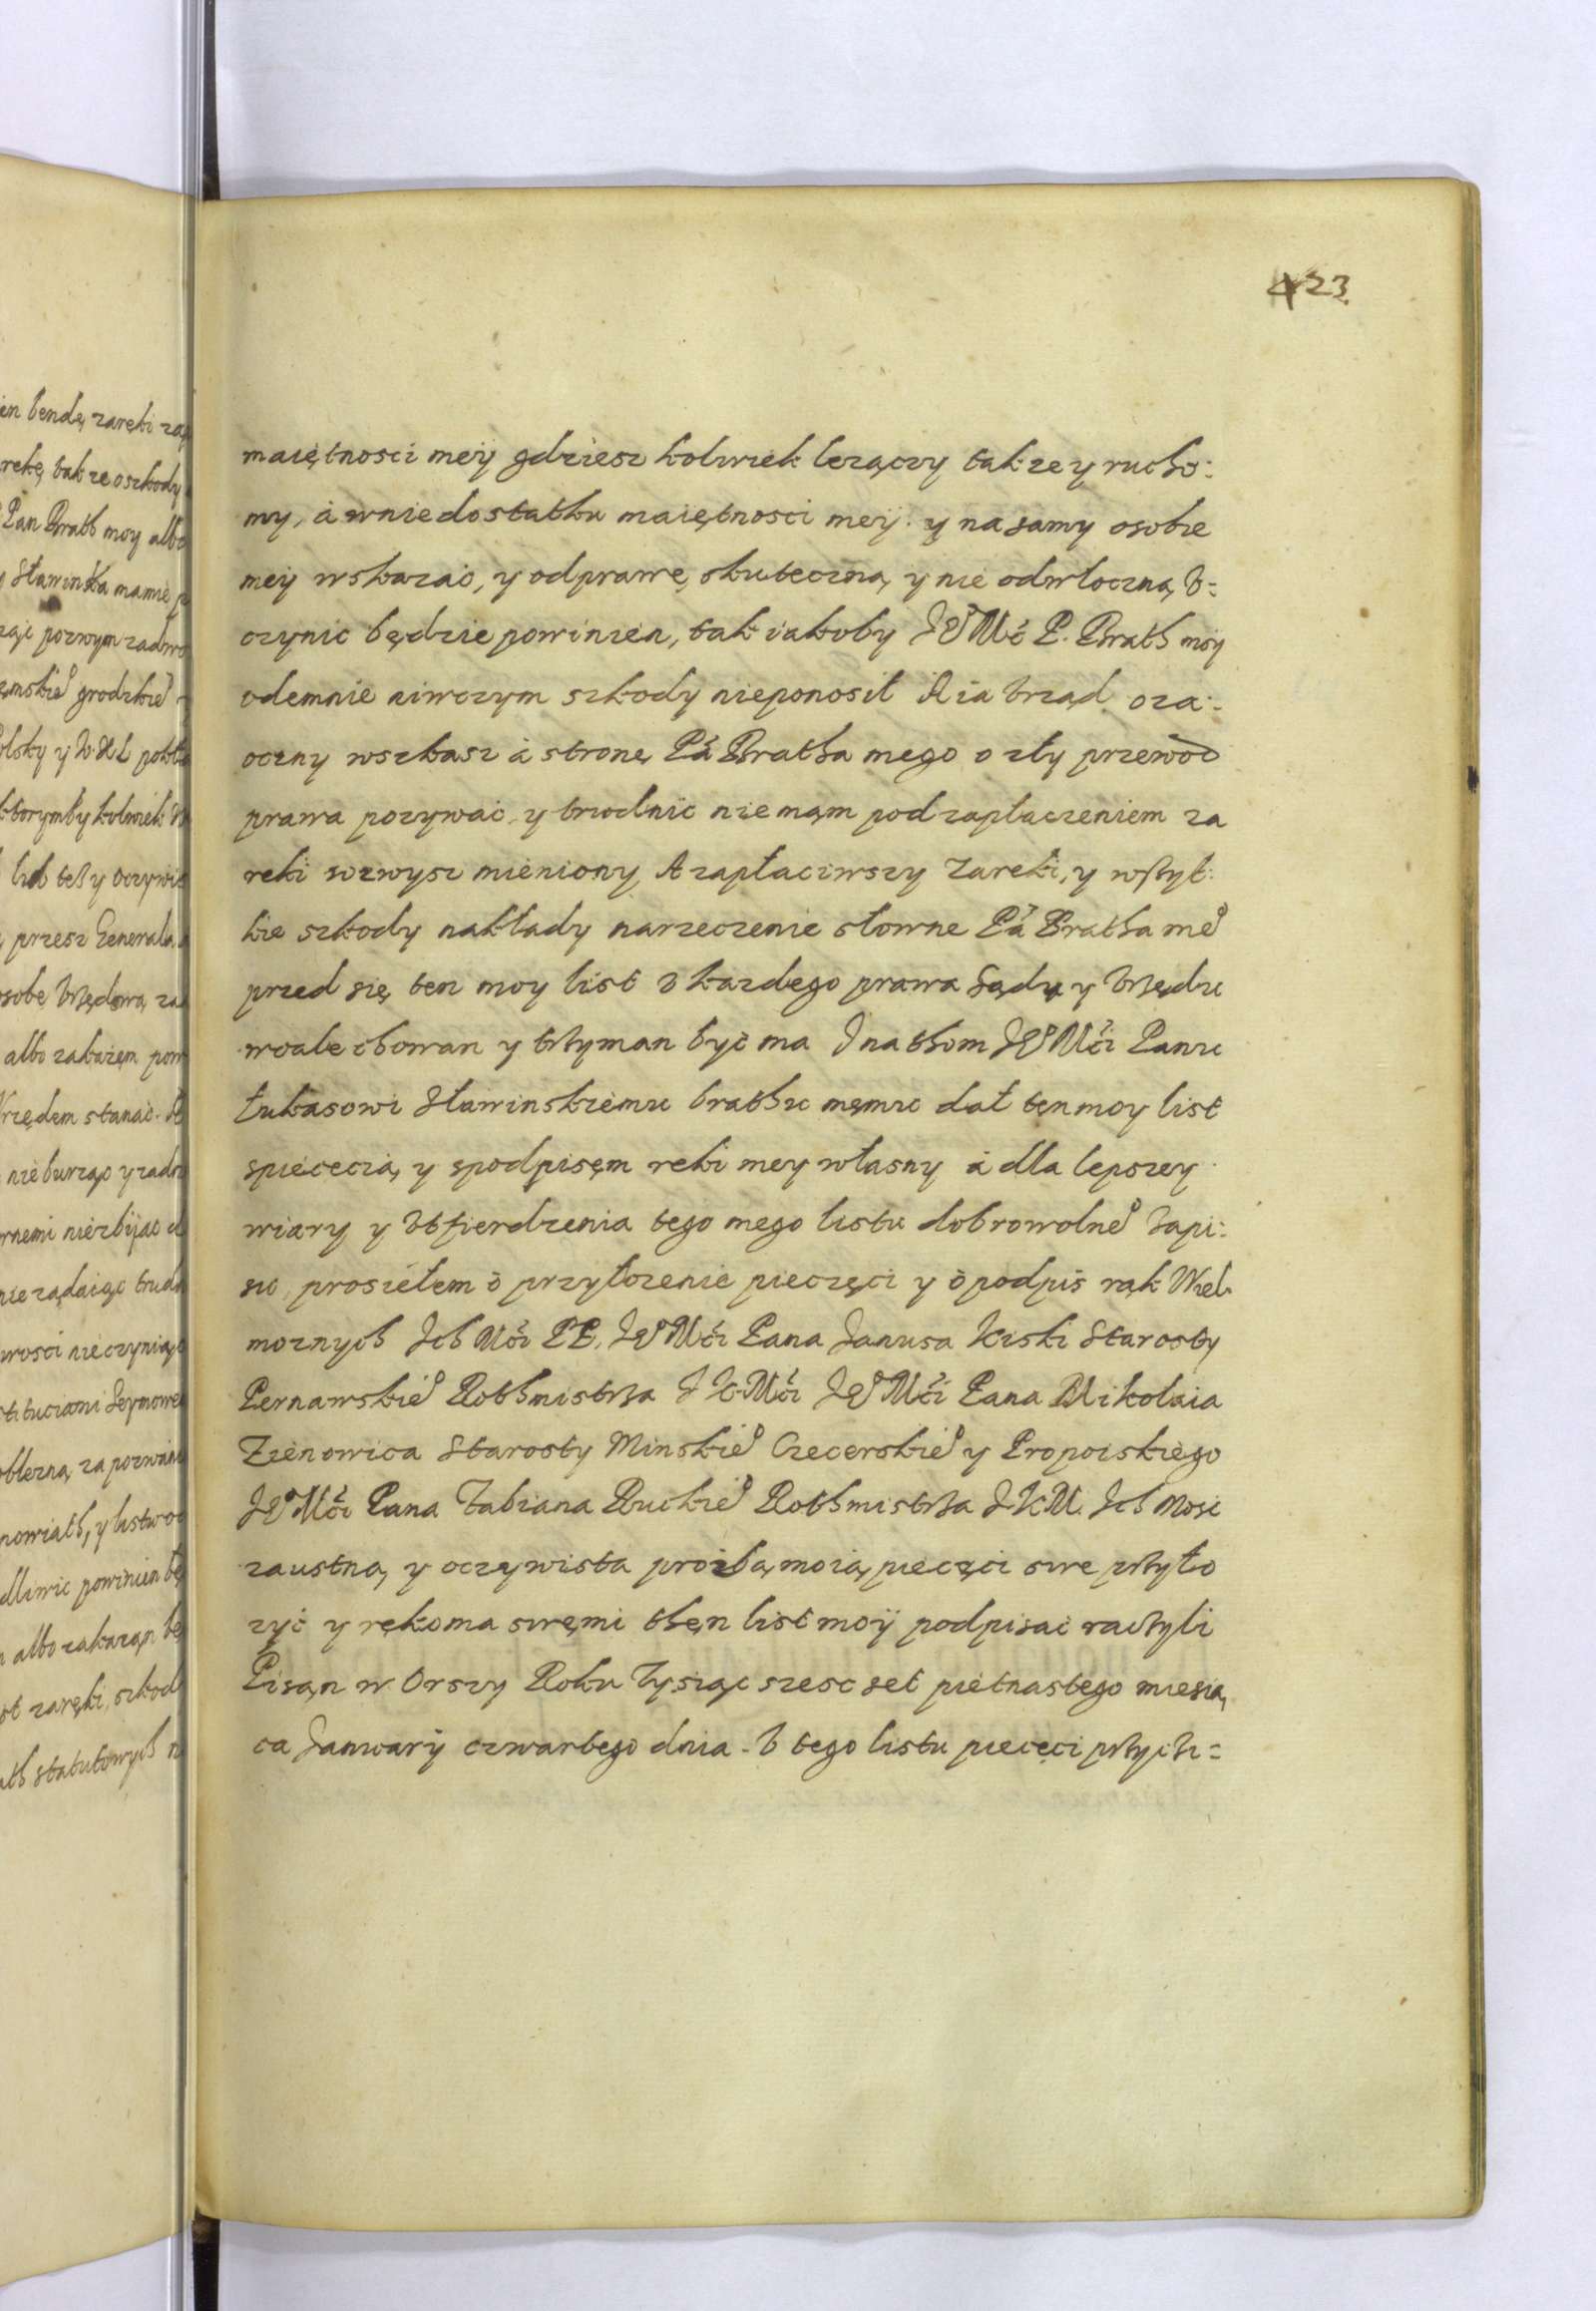 423
maiętnosci meÿ gdziesz kolwiek lezączy takze y rucho:
my, á wniedostatku maiętnosci meÿ. y na samy osobie
meÿ wskazac, y odprawę skuteczną y nie odwłoczną V=
czynic będzie powinien, tak iakoby JE Mć P. Brath móy
odemnie niwczym szkody nieponosił A ia Vrząd oza:
oczny wszkasz á stronę Pá Bratha mego o zły przewod
prawa pozywac, y trudnic nie mąm pod zapłaczeniem za
reki wzwysz mieniony A zapłaciwszy Zareki, y wszyt:
kie szkody nakłady narzeczenie słowne Pá Bratha meº
przed się ten moy list V kazdego prawa Sądu y Vrzędu
wcale chowan y trzyman być ma I na thom JE Mći Panu
Łukasowi Sławinskiemu brathu męmu dał tęn moy list
spiececią y spodpisęm reki mey własny á dla lepszey
wiary y Vtfierdzenia tego mego listu dobrowolneº Zapi:
su, prosiełem ò przyłozenie pieczęci y ò podpis rąk Wiel
moznych Ich Mći PP. JE Mći Pana Janusa Kiski Starosty
Pernawskieº Rothmistrza J K Mći JE Mći Pana Mikolaia
Zienowica Starosty Minskieº Czecerskieº y Propoiskiego
JE Mći Pana Fabiana Ruckieº Rothmistrza J. K M. Ich Mosc
zaustną y oczywista proźbą moią pieczęci swe przyło
zyć y rękoma swęmi thęn list moÿ podpisać raczyli
Pisąn w Orszy Roku Tysiąc szesc set piętnastego miesią
ca Januarÿ czwartego dnia. V tego listu piecęci przyci=